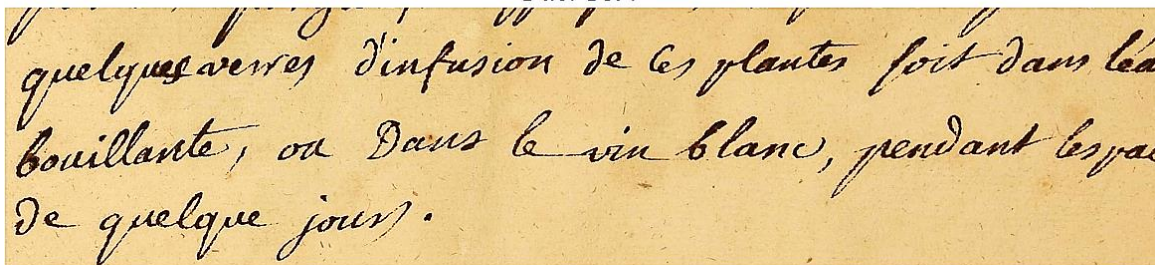 quelques verres d'infusion de ces plantes soit dans léa
bouillante, ou Dans le vin blanc, pendant lespac
de quelque jours.